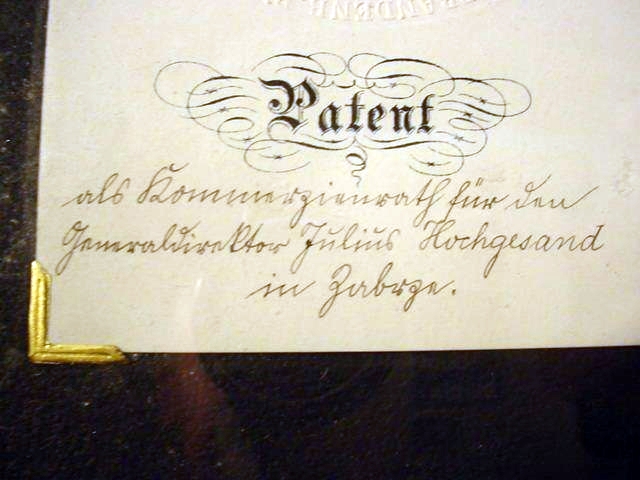 BRANDENB
Patent
als Kommerzienrath für den
Generaldirektor Julius Hochgesand
in Zabrze.